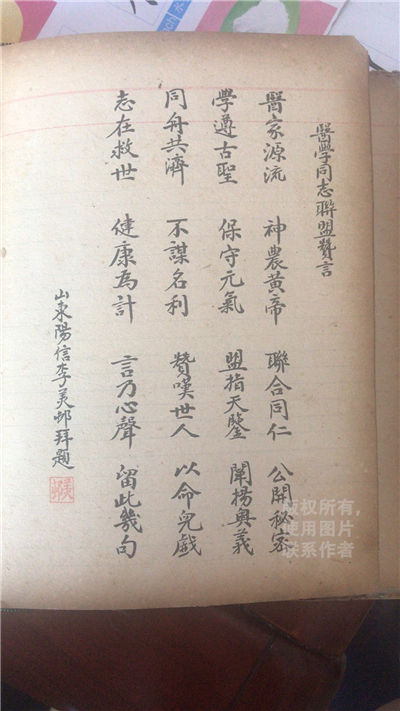 醫學同志聯盟贊言
醫家源流 神農黃帝 聯合同仁 公開秘密
學遵古聖 保守元氣 盟指天鑒 闡揚奧義
同舟共濟 不謀名利 贊嘆世人 以命兒戲
志在救世 健康為計 言乃心聲 留此幾句
山東陽信李美邨拜題
版权所有，
使用图片
联系作者